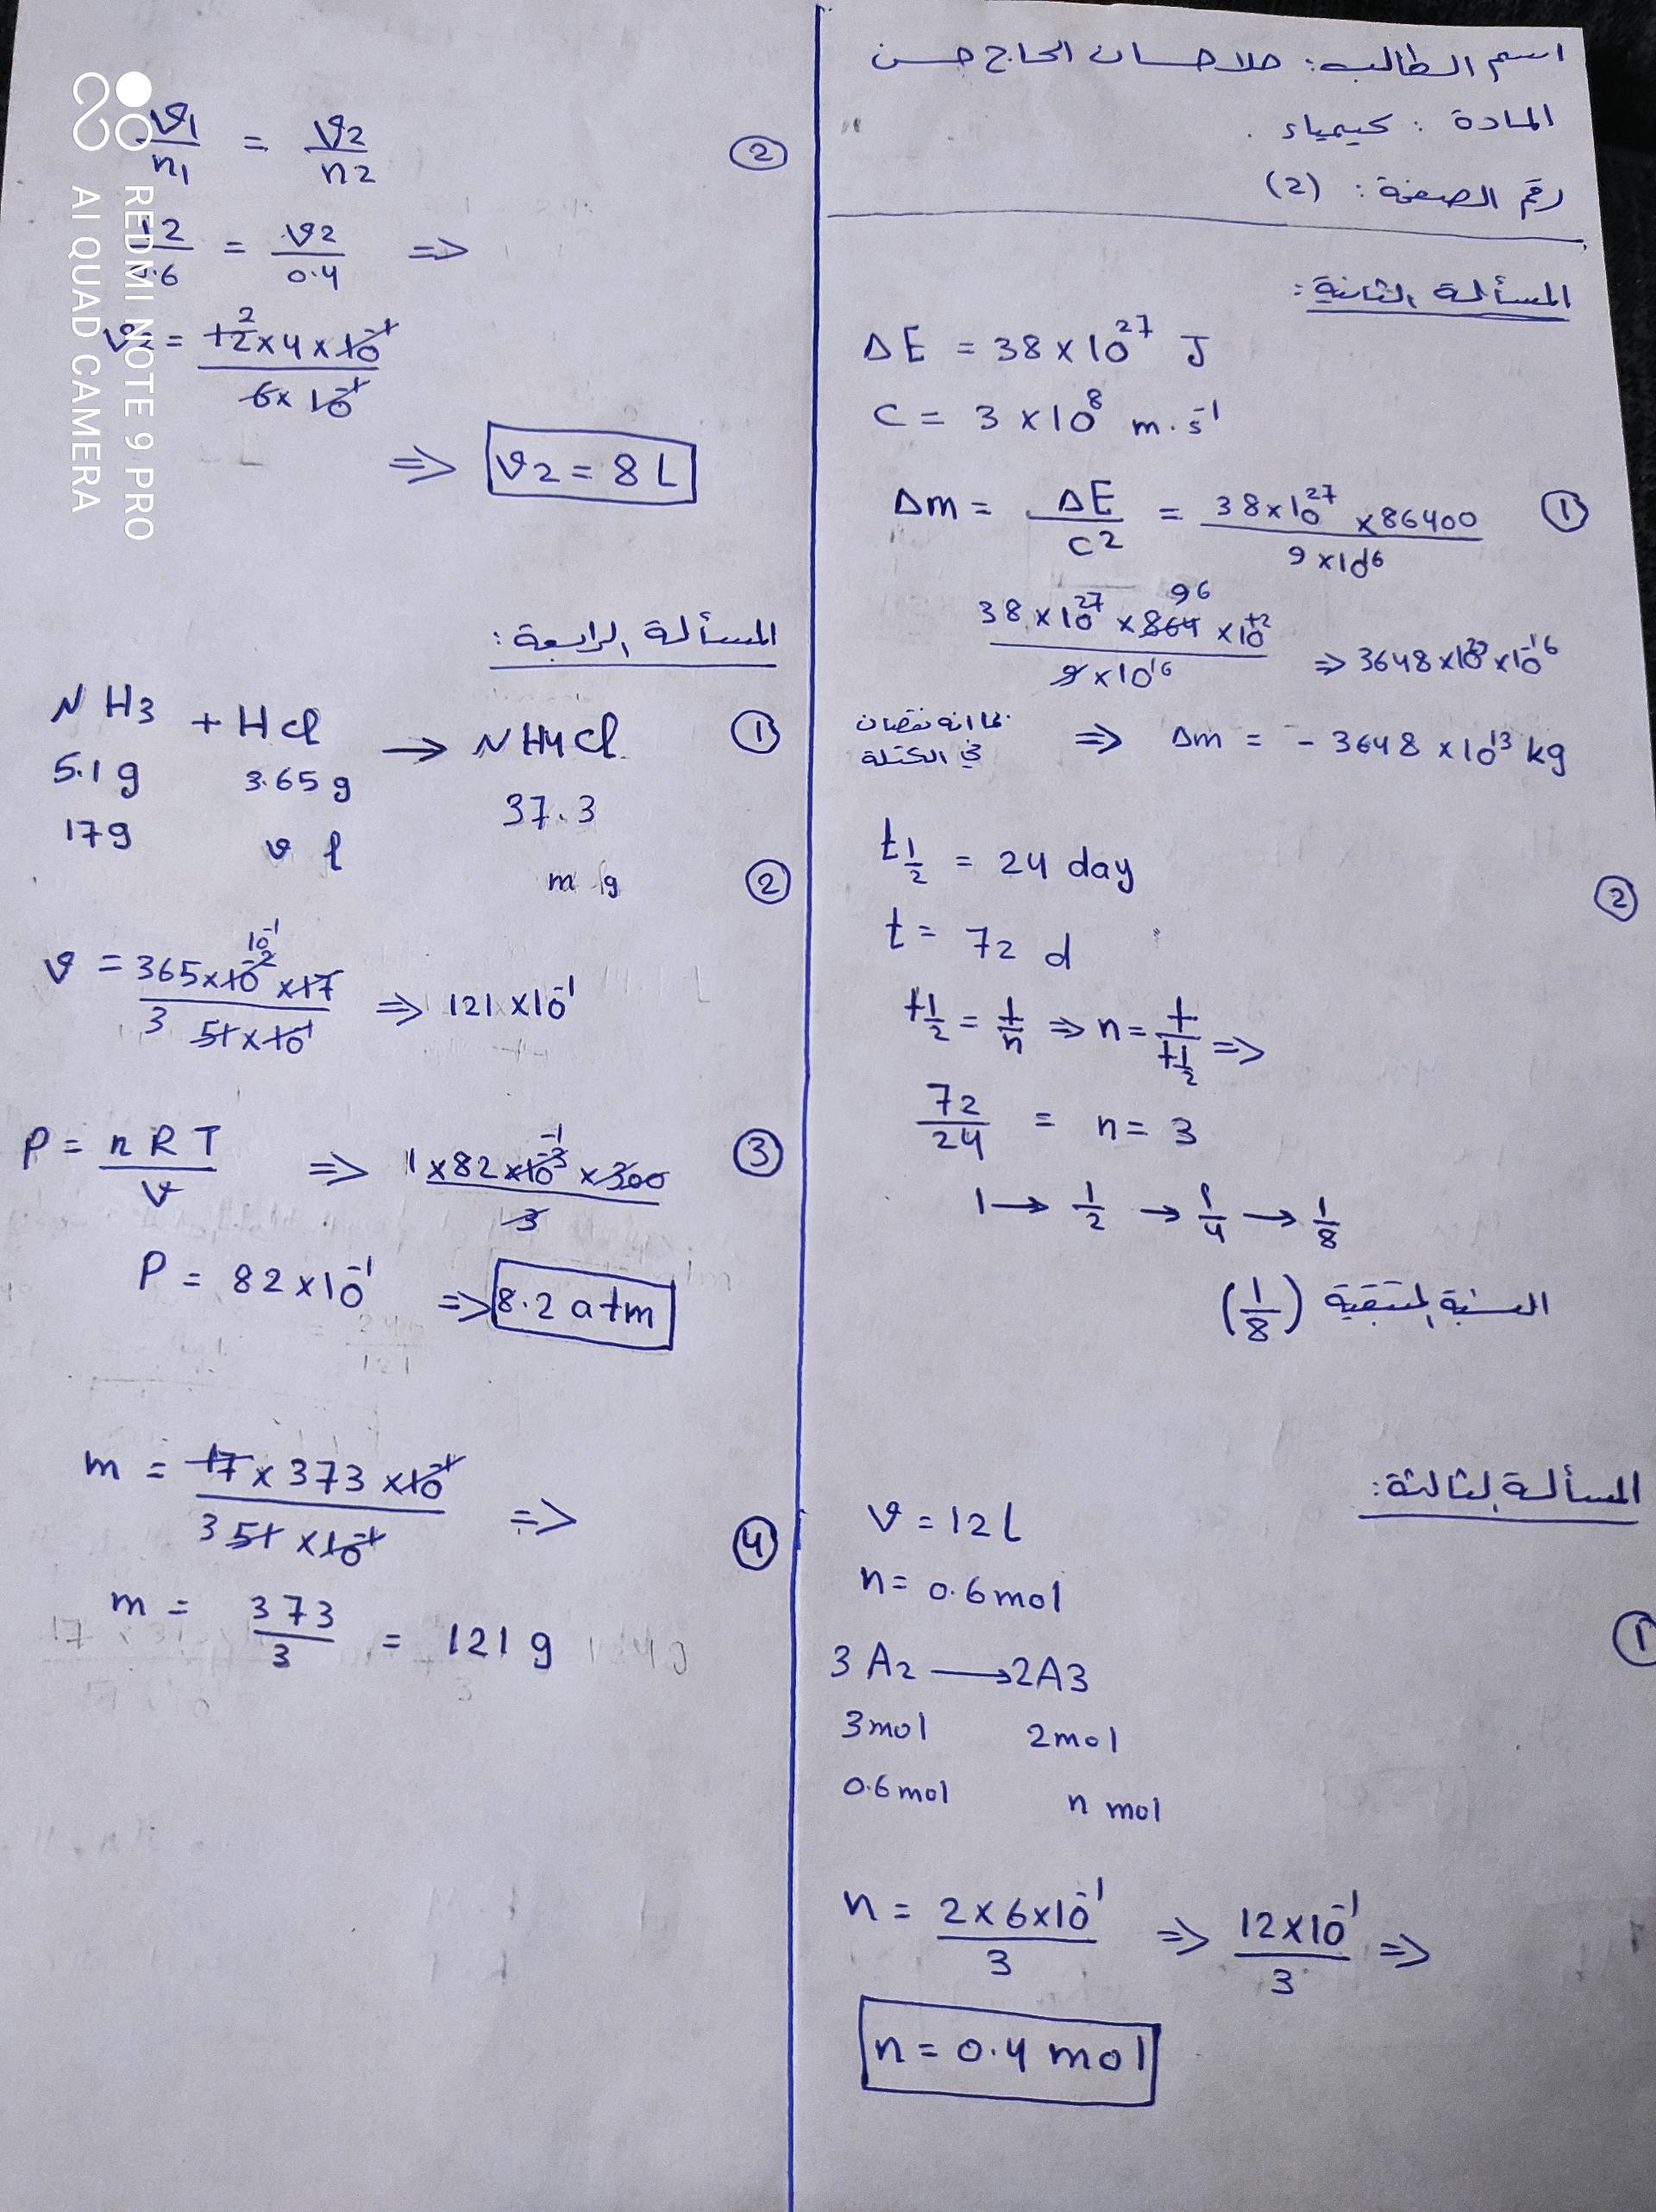 اسم الطالب: حلا حسان الحاج حسن
المادة : كيمياء .
رقم الصفحة : (2)
المسألة الثانية:
ΔE = 38 x 10^27 J
C = 3 x 10^8 m . s^-1
Δm = ΔE / C^2 = 38 x 10^27 x 86400 / 9 x 10^16 ①
38 x 10^27 x 864 96 x 10^+2 / 9 x 10^16 => 3648 x 10^29 x 10^-16
بما انه نقصان في الكتلة => Δm = - 3648 x 10^13 kg
t 1/2 = 24 day ②
t = 72 d
t 1/2 = t/n => n = t / t 1/2 =>
72/24 = n = 3
1 → 1/2 → 1/4 → 1/8
النسبة المتبقية (1/8)
المسألة الثالثة:
v = 12 L
n = 0.6 mol ①
3 A2 → 2A3
3 mol 2 mol
0.6 mol n mol
n = 2 x 6 x 10^-1 / 3 => 12 x 10^-1 / 3 =>
n = 0.4 mol
v1/n1 = v2/n2 ②
12/0.6 = v2/0.4 =>
v2 = 12 2 x 4 x 10^-1 / 6 x 10^-1
=> v2 = 8 L
المسألة الرابعة:
NH3 + HCl → NH4Cl ①
5.1 g 3.65 g 37.3
17 g v l m g ②
v = 365 x 10^-2 10^-1 x 17 / 3 51 x 10^-1 => 121 x 10^-1
P = n R T / v => 1 x 82 x 10^-3 -1 x 300 / 3 ③
P = 82 x 10^-1 => 8.2 atm
m = 17 x 373 x 10^-1 / 3 51 x 10^-1 => ④
m = 373/3 = 121 g
REDMI NOTE 9 PRO
AI QUAD CAMERA